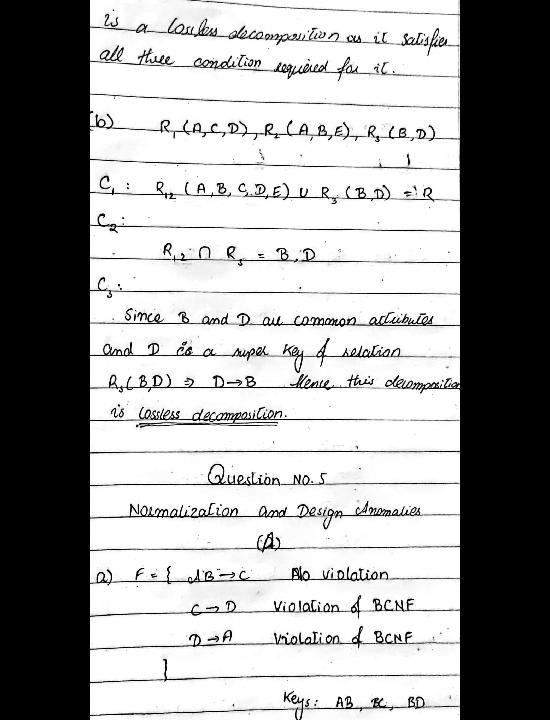 is a lossless decomposition as it satisfies
all three condition required for it.
(b) R₁(A,C,D), R₂(A,B,E), R₃(B,D)
C₁: R₁₂(A,B,C,D,E) ∪ R₃(B,D) = R
C₂:
R₁₂ ∩ R₃ = B,D
C₃:
Since B and D are common attributes
and D is a super key of relation
R₃(B,D) ⇒ D→B Hence this decomposition
is lossless decomposition.
Question NO. 5
Normalization and Design Anomalies
(A)
a) F = { AB→C No violation
C→D Violation of BCNF
D→A Violation of BCNF
}
Keys: AB, BC, BD